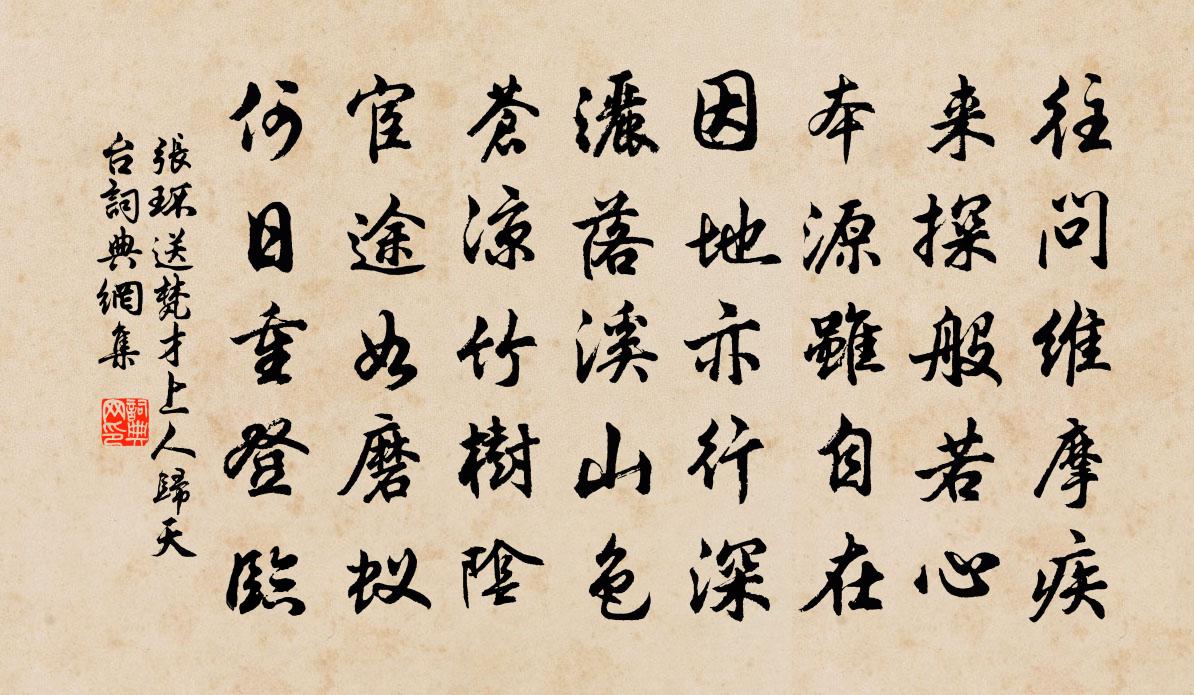 往問維摩疾
来探般若心
本源雖自在
因地亦行深
灑落溪山色
蒼涼竹樹陰
宦途如磨蚁
何日重登臨
張瓌送梵才上人歸天
台詞典網集
詞典
网印